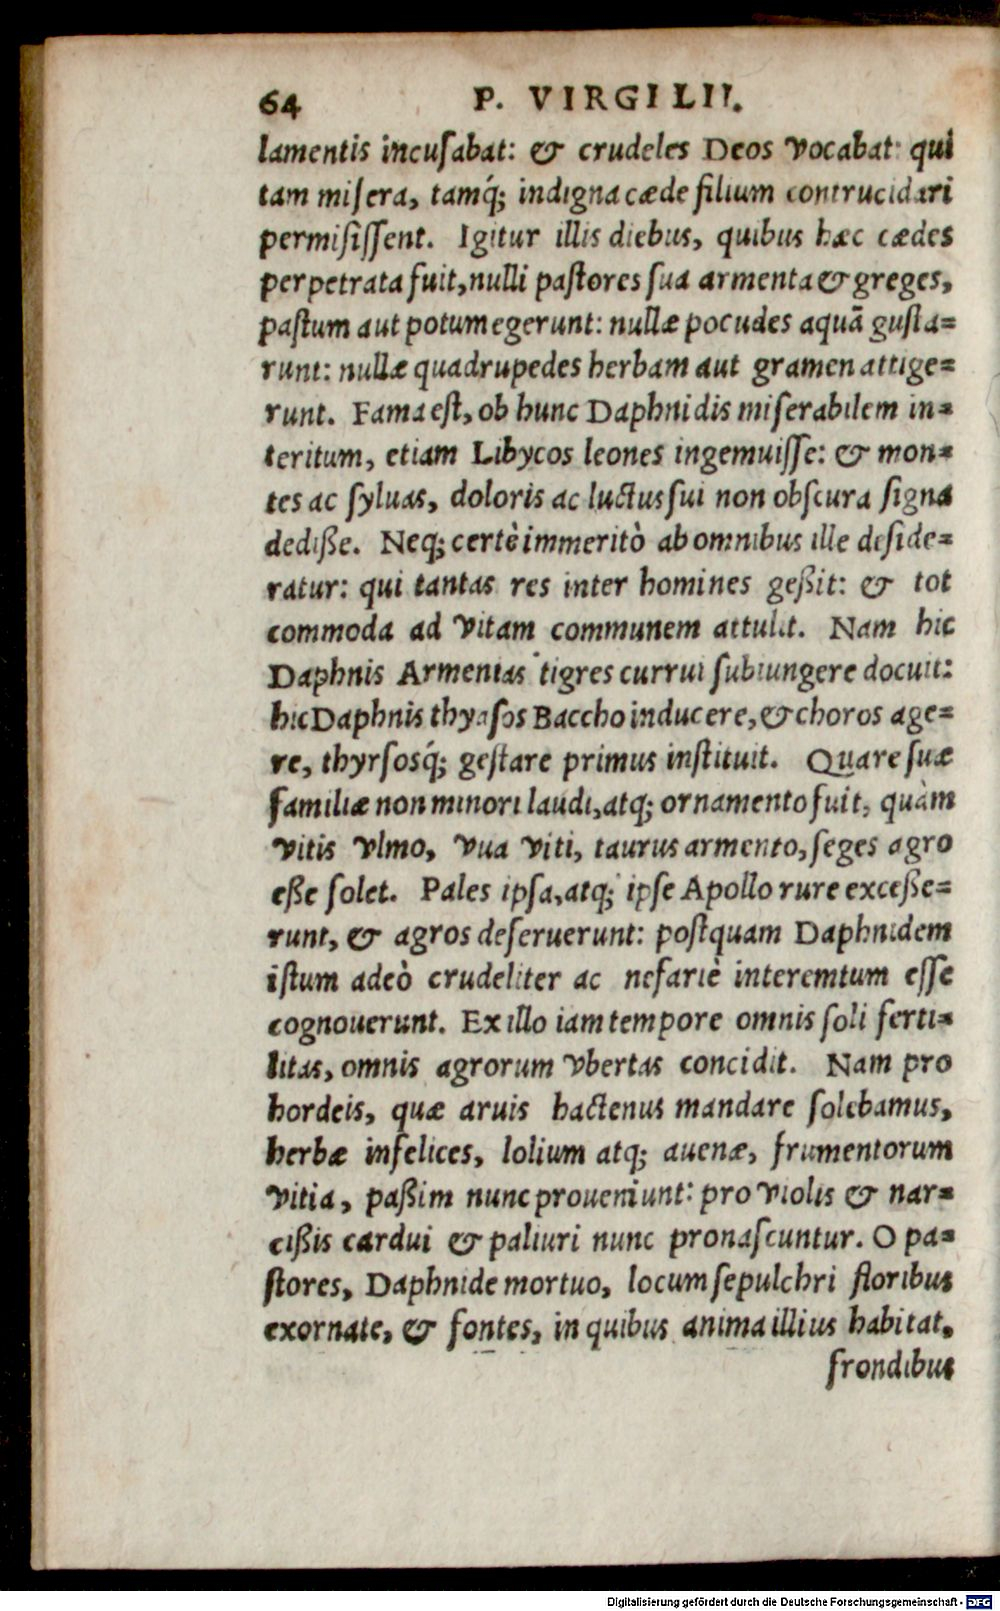 64 P. VIRGILII.
lamentis incusabat: & crudeles Deos vocabat: qui
tam misera, tamq́; indigna cæde filium contrucidari
permisissent. Igitur illis diebus, quibus hæc cædes
perpetrata fuit, nulli pastores sua armenta & greges,
pastum aut potum egerunt: nullæ pocudes aquã gusta=
runt: nullæ quadrupedes herbam aut gramen attige=
runt. Fama est, ob hunc Daphnidis miserabilem in=
teritum, etiam Libycos leones ingemuisse: & mon=
tes ac syluas, doloris ac luctus sui non obscura signa
dediße. Neq; certè immeritò ab omnibus ille deside=
ratur: qui tantas res inter homines geßit: & tot
commoda ad vitam communem attulit. Nam hic
Daphnis Armenias tigres currui subiungere docuit:
hic Daphnis thyasos Baccho inducere, & choros age=
re, thyrsosq́; gestare primus instituit. Quare suæ
familiæ non minori laudi, atq; ornamento fuit, quàm
vitis vlmo, vua viti, taurus armento, seges agro
eße solet. Pales ipsa, atq; ipse Apollo rure exceße=
runt, & agros deseruerunt: postquam Daphnidem
istum adeò crudeliter ac nefariè interemtum esse
cognouerunt. Ex illo iam tempore omnis soli ferti=
litas, omnis agrorum vbertas concidit. Nam pro
hordeis, quæ aruis hactenus mandare solebamus,
herbæ infelices, lolium atq; auenæ, frumentorum
vitia, paßim nunc proueniunt: pro violis & nar=
cißis cardui & paliuri nunc pronascuntur. O pa=
stores, Daphnide mortuo, locum sepulchri floribus
exornate, & fontes, in quibus anima illius habitat,
frondibus
Digitalisierung gefördert durch die Deutsche Forschungsgemeinschaft - DFG